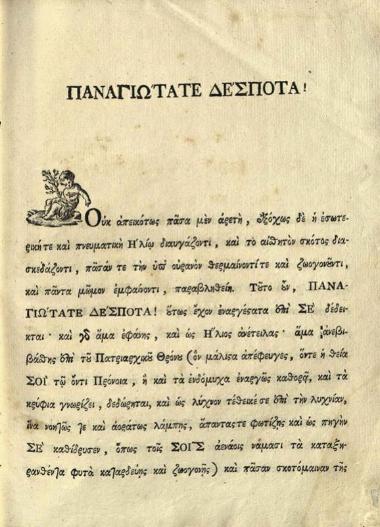 ΠΑΝΑΓΙΩ΄ΤΑΤΕ ΔΕ΄ΣΠΟΤΑ!
Οὐκ ἀπεικότως πᾶσα μὲν ἀρετὴ, ἐξόχως δὲ ἡ ἐσωτε-
ρικήτε καὶ πνευματικὴ Η῾λίῳ διαυγάζοντι, καὶ τὸ αἰσθητὸν σκότος δια-
σκεδάζοντι, πᾶσάν τε τὴν ὑπ' οὐρανὸν θερμαίνοντίτε καὶ ζωογονοῦντι,
καὶ πάντα μῶμον ἐμφαίνοντι, παραβληθείη. Τοῦτο οὖν, ΠΑΝΑ-
ΓΙΩ΄ΤΑΤΕ ΔΕ΄ΣΠΟΤΑ! οὕτως ἔχον ἐναργέσατα ἐπὶ ΣΕ` δέδει-
κται· καὶ γὸ ἅμα ἐφάνης, καὶ ὡς Η῞λιος ἀνέτειλας· ἅμα ἀνεβι-
βάσθης ἐπὶ τοῦ Πατριαρχικοῦ Θρόνου (ὃν μάλιστα ἀπέφευγες, ὅντε ἡ θεία
ΣΟΙ` τῷ ὄντι Πρόνοια, ἣ καὶ τὰ ἐνδόμυχα ἐναργῶς καθορᾷ, καὶ τὰ
κρύφια γνωρίζει, δεδώρηται, καὶ ὡς λύχνον τέθεικέ σε ἐπὶ τὴν λυχνίαν,
ἵνα νοητῶς τε καὶ ἀοράτως λάμπῃς, ἅπανταςτε φωτίζῃς καὶ ὡς πηγὴν
ΣΕ` καθίδρυσεν, ὅπως τοῖς ΣΟΙ῀Σ ἀενάοις νάμασι τὰ καταξη-
ρανθέντα φυτὰ καταρδεύῃς καὶ ζωογονῇς) καὶ πᾶσαν σκοτόμαιναν τῆς